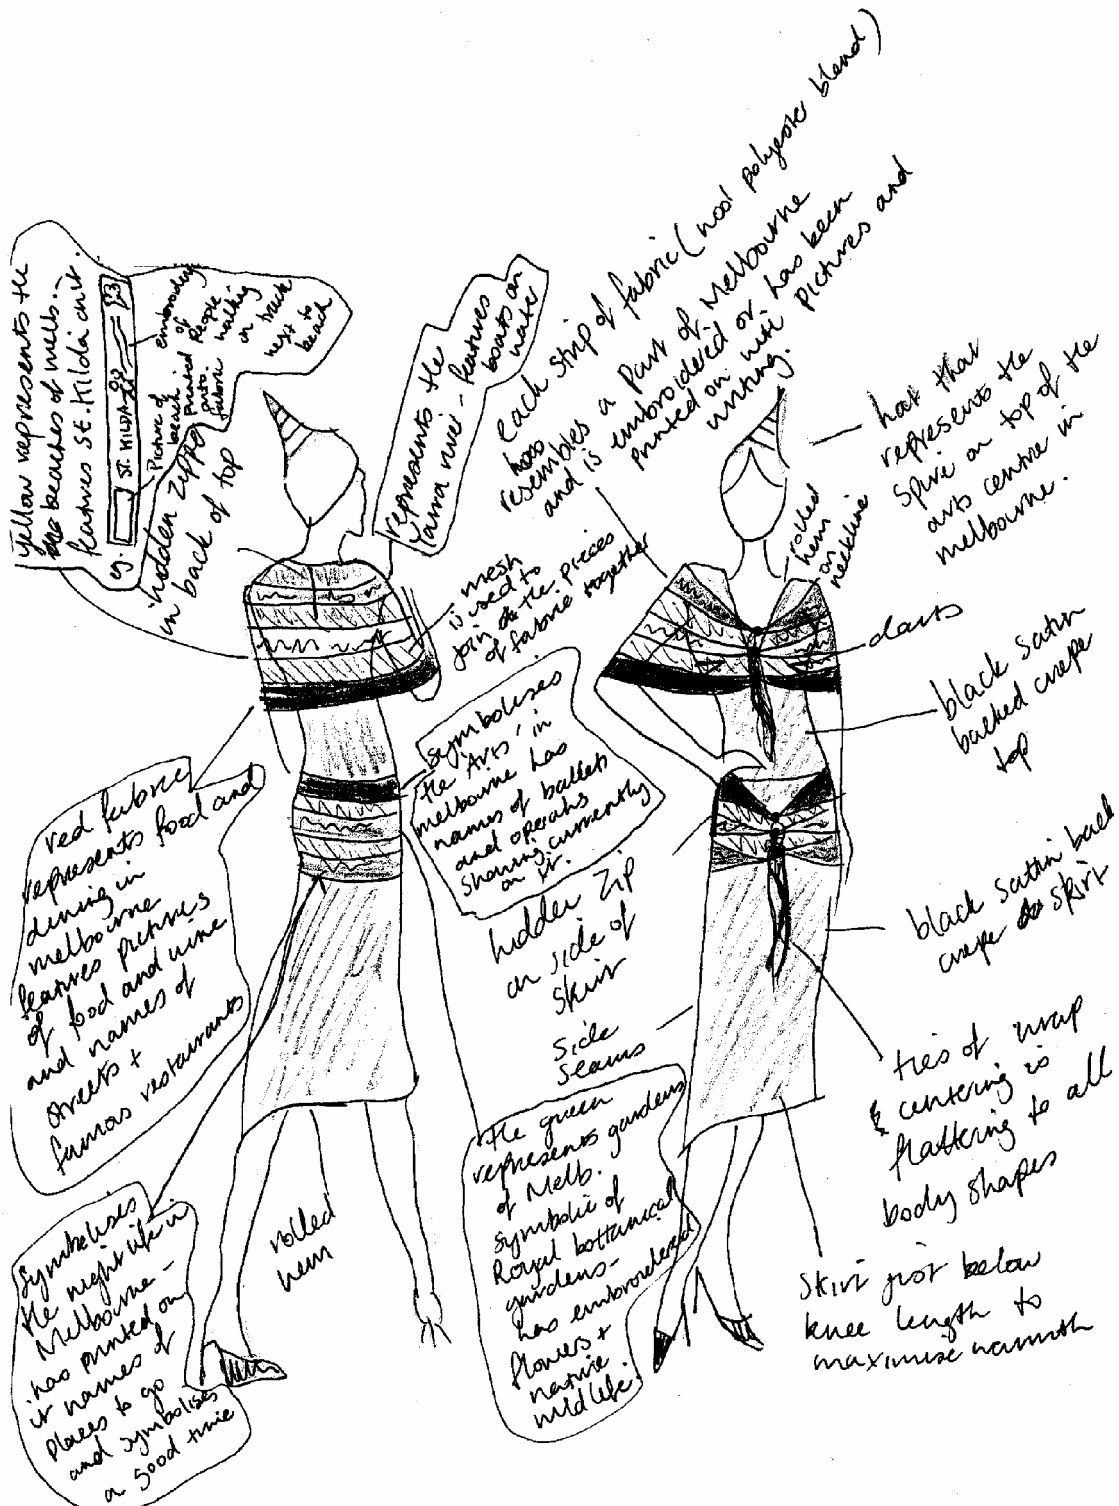 yellow represents the
beaches of melb. -
features St. Kilda on it.
eg.
ST. KILDA
Picture of
beach
printed
onto
fabric
embroidery
of
People
walking
on track
next to
beach
hidden zipper
in back of top
represents the
Yarra river - features
boats on
water
each strip of fabric (wool polyester blend)
resembles a part of Melbourne
and is embroidered or has been
printed on with pictures and
writing.
hat that
represents the
spire on top of the
arts centre in
melbourne.
rolled
hem
on
neckline
mesh
is used to
join the pieces
of fabric together
darts
black satin
backed crepe
top
symbolises
the 'Arts' in
melbourne has
names of ballets
and operahs
showing currently
on it.
red fabric
represents food and
dining in
melbourne
features pictures
of food and wine
and names of
streets +
famous restaurants
hidden zip
on side of
skirt
black satin back
crepe skirt
side
seams
ties of wrap
& centering is
flattering to all
body shapes
the green
represents gardens
of Melb.
symbolic of
Royal bottanical
gardens -
has embroidered
flowers +
native
wildlife.
Symbolises
the night life in
Melbourne -
has printed on
it names of
places to go
and symbolises
a good time
rolled
hem
Skirt just below
knee length to
maximise warmth